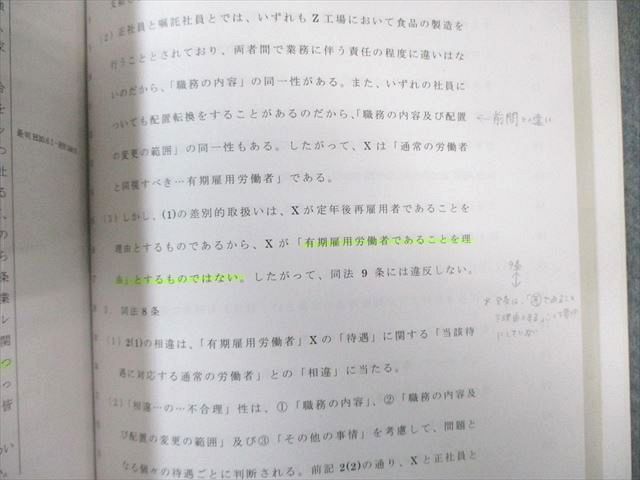 (2) 正社員と嘱託社員とでは、いずれもZ工場において食品の製造を
行うこととされており、両者間で業務に伴う責任の程度に違いはな
いのだから、「職務の内容」の同一性がある。また、いずれの社員に
ついても配置転換をすることがあるのだから、「職務の内容及び配置
の変更の範囲」の同一性もある。したがって、Xは「通常の労働者
と同視すべき…有期雇用労働者」である。
←前問との違い
(3) しかし、(1)の差別的取扱いは、Xが定年後再雇用者であることを
理由とするものであるから、Xが「有期雇用労働者であることを理
由」とするものではない。したがって、同法9条には違反しない。
9条
2. 同法8条
(1) 2(1)の相違は、「有期雇用労働者」Xの「待遇」に関する「当該待
遇に対応する通常の労働者」との「相違」に当たる。
(2)「相違…の…不合理」性は、①「職務の内容」、②「職務の内容及
び配置の変更の範囲」及び③「その他の事情」を考慮して、問題と
なる個々の待遇ごとに判断される。前記2(2)の通り、Xと正社員と